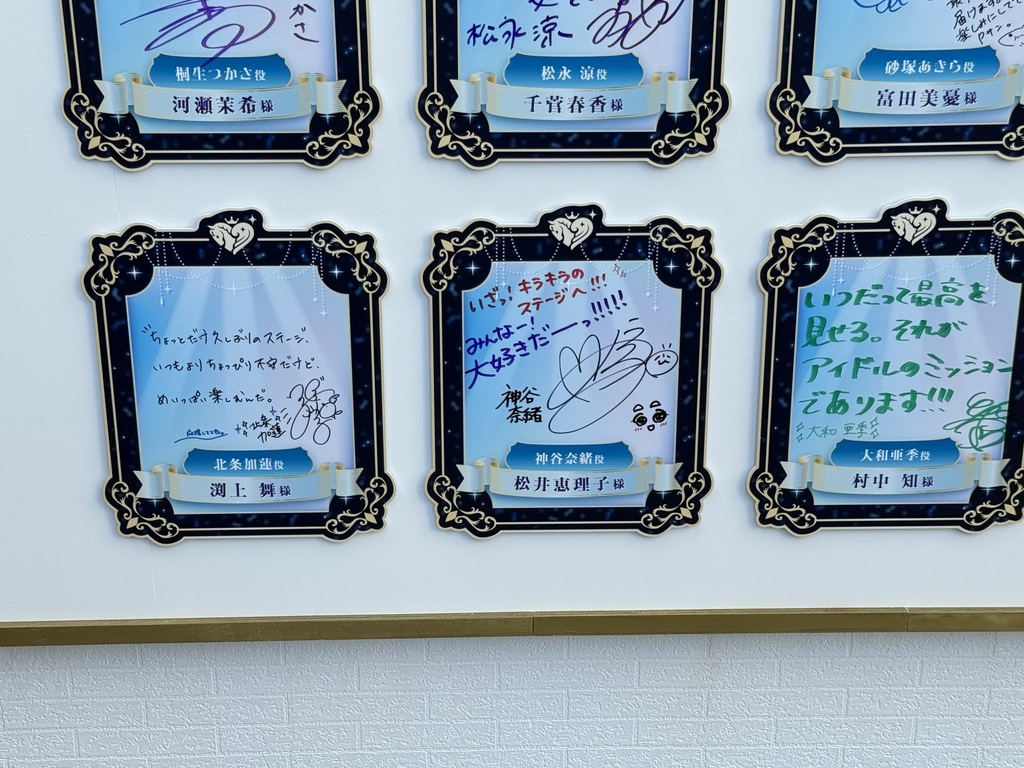 かさ
桐生つかさ役
河瀬茉希様
松永涼
松永 涼役
千菅春香様
届けます。
楽しみにしてて
Pサン。
砂塚あきら役
富田美憂様
"ちょっとだけ久しぶりのステージ、
いつもよりちょっぴり不安だけど、
めいっぱい楽しむんだ。
北条
加蓮
北条加蓮役
渕上 舞様
いざっ！キラキラの
ステージへ!!!
みんなー！
大好きだーっ!!!!!
神谷
奈緒
神谷奈緒役
松井恵理子様
いつだって最高を
見せる。それが
アイドルのミッション
であります!!!
大和 亜季
大和亜季役
村中 知様